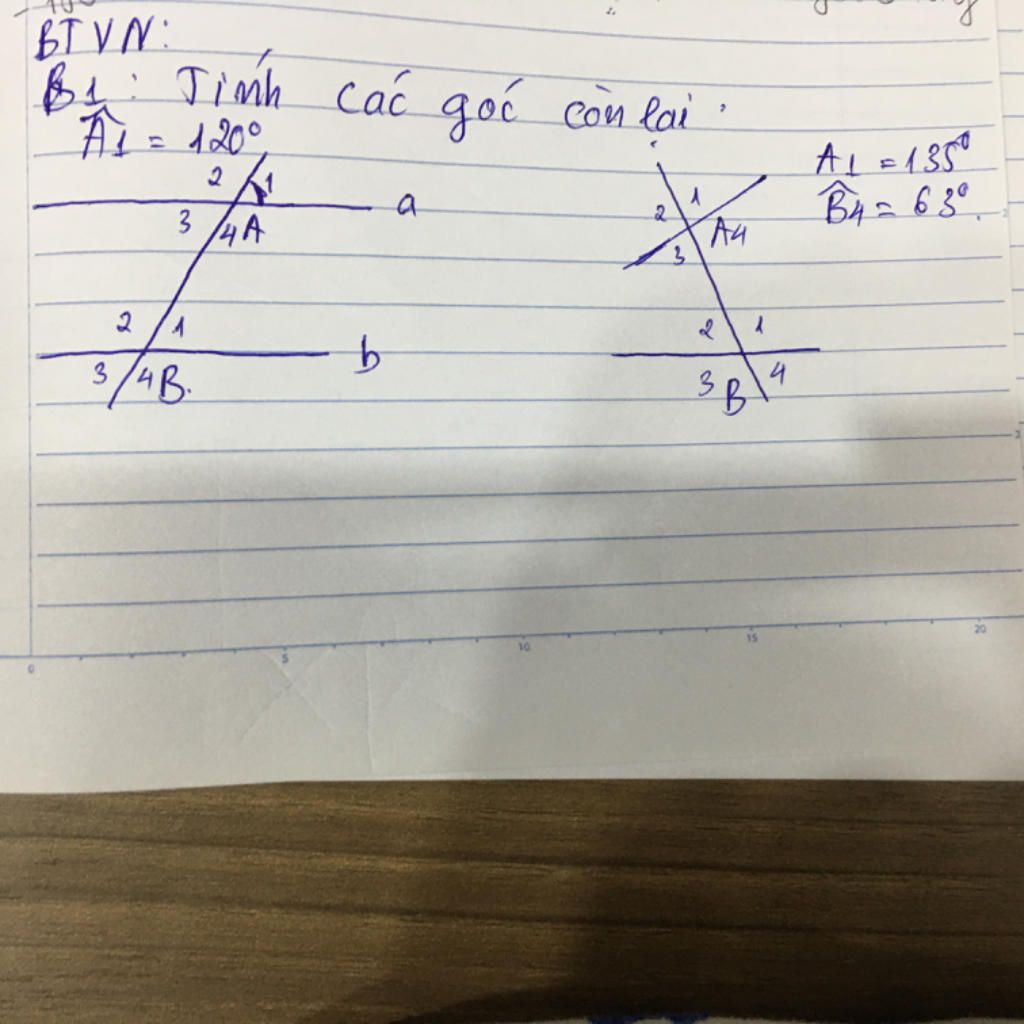 BTVN:
B1: Tính các góc còn lại.
Â1 = 120°
2 1
a
3 4A
2 1
b
3 4B.
A1 = 135°
B̂4 = 63°.
2 1
3 A4
2 1
3 B 4
0 5 10 15 20